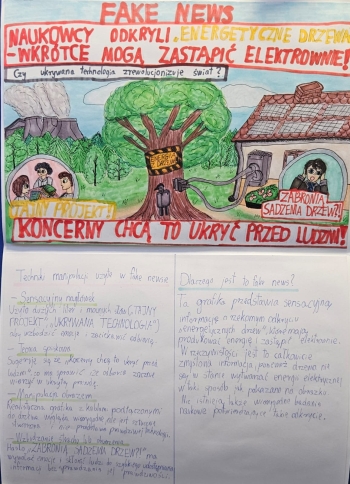 FAKE NEWS
NAUKOWCY ODKRYLI „ENERGETYCZNE DRZEWA”
–WKRÓTCE MOGĄ ZASTĄPIĆ ELEKTROWNIE!
Czy ukrywana technologia zrewolucjonizuje świat?
TAJNY PROJEKT!
ZABRONIĄ
SADZENIA DRZEW?!
KONCERNY CHCĄ TO UKRYĆ PRZED LUDŹMI!
Techniki manipulacji użyte w fake newsie
– Sensacyjny nagłówek
Użyto dużych liter i mocnych słów („TAJNY
PROJEKT”, „UKRYWANA TECHNOLOGIA”)
aby wzbudzić emocje i zaciekawić odbiorcę.
– Teoria spiskowa
Sugeruje się, że „koncerny chcą to ukryć przed
ludźmi”, co ma sprawić, że odbiorca zacznie
wierzyć w ukrytą prawdę.
– Manipulacja obrazem
Realistyczna grafika z kablami podłączonymi
do drzewa wygląda
prawdziwej technologii.
– Wzbudzanie strachu lub oburzenia
Hasło „ZABRONIĄ SADZENIA DRZEW?!” ma
wywołać emocje i skłonić ludzi do szybkiego udostępniania
informacji bez sprawdzania jej prawdziwości.
Dlaczego jest to fake news?
Ta grafika przedstawia sensacyjną
informację o rzekomym odkryciu
„energetycznych drzew”, które mają
produkować energię i zastąpić elektrownie.
W rzeczywistości jest to całkowicie
zmyślona informacja, ponieważ drzewa nie
są w stanie wytwarzać energii elektrycznej
w taki sposób, jak pokazano na obrazku.
Nie istnieją także wiarygodne badania
naukowe potwierdzające takie odkrycie.